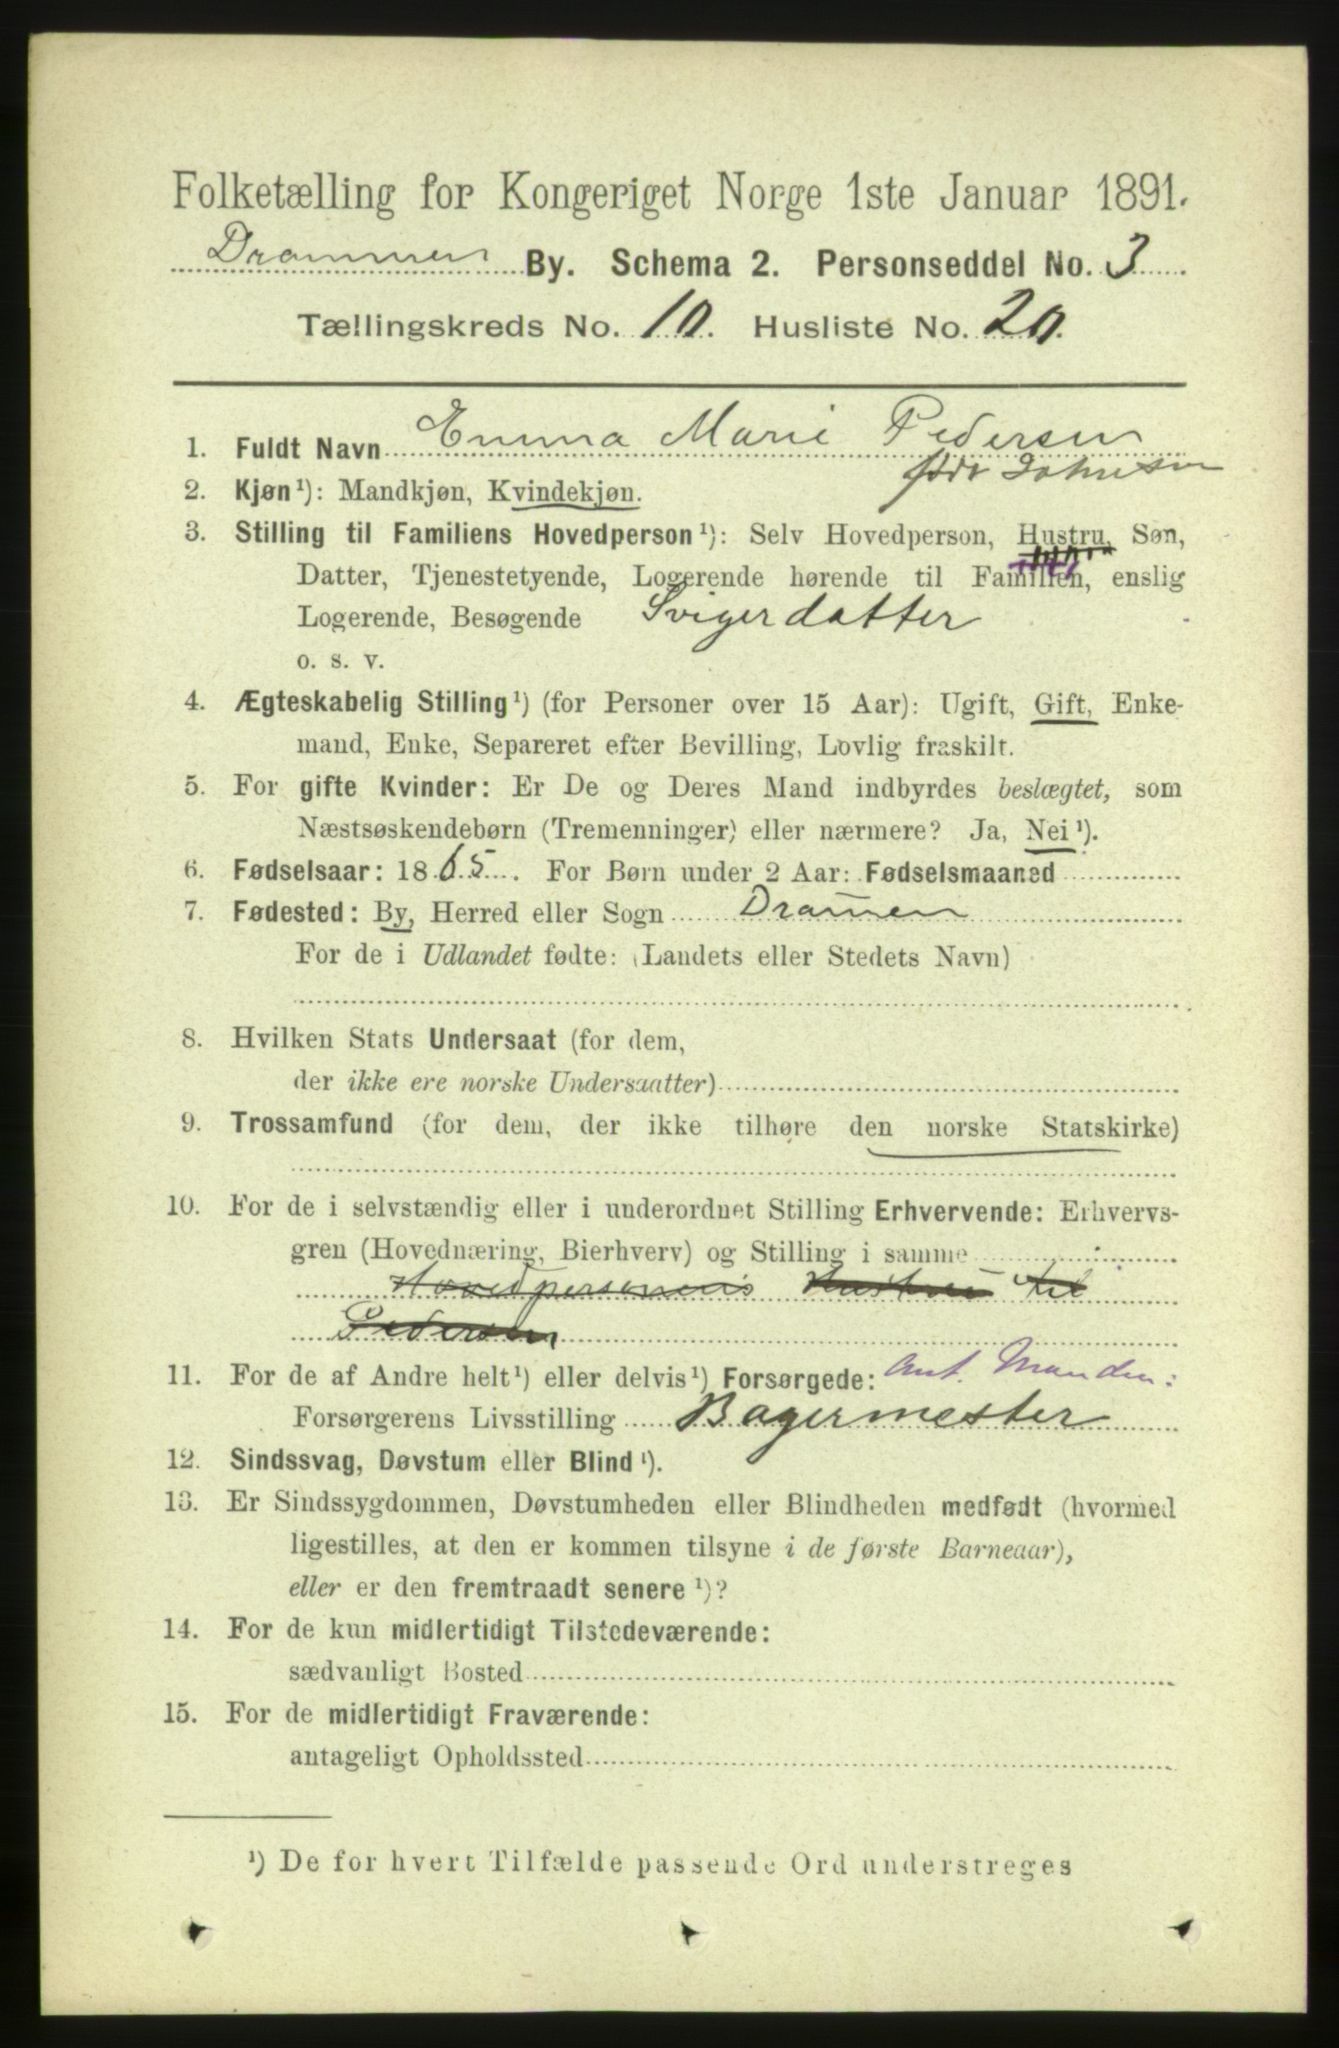 Folketælling for Kongeriget Norge 1ste Januar 1891.
Drammens By. Schema 2. Personseddel No. 3
Tællingskreds No. 10. Husliste No. 20.
1. Fuldt Navn Emma Marie Pedersen
født Johnsen
2. Kjøn¹): Mandkjøn, Kvindekjøn.
3. Stilling til Familiens Hovedperson¹): Selv Hovedperson, Hustru, Søn,
Datter, Tjenestetyende, Logerende hørende til Familien, enslig
Logerende, Besøgende Svigerdatter
o. s. v.
4. Ægteskabelig Stilling¹) (for Personer over 15 Aar): Ugift, Gift, Enke-
mand, Enke, Separeret efter Bevilling, Lovlig fraskilt.
5. For gifte Kvinder: Er De og Deres Mand indbyrdes beslægtet, som
Næstsøskendebørn (Tremenninger) eller nærmere? Ja, Nei¹).
6. Fødselsaar: 1865. For Børn under 2 Aar: Fødselsmaaned
7. Fødested: By, Herred eller Sogn Dramen
For de i Udlandet fødte: (Landets eller Stedets Navn)
8. Hvilken Stats Undersaat (for dem,
der ikke ere norske Undersaatter)
9. Trossamfund (for dem, der ikke tilhøre den norske Statskirke)
10. For de i selvstændig eller i underordnet Stilling Erhvervende: Erhvervs-
gren (Hovednæring, Bierhverv) og Stilling i samme
Hovedpersonens Hustru til
Pedersen
11. For de af Andre helt¹) eller delvis¹) Forsørgede: Ant. Manden:
Forsørgerens Livsstilling Bagermester
12. Sindssvag, Døvstum eller Blind¹).
13. Er Sindssygdommen, Døvstumheden eller Blindheden medfødt (hvormed
ligestilles, at den er kommen tilsyne i de første Barneaar),
eller er den fremtraadt senere¹)?
14. For de kun midlertidigt Tilstedeværende:
sædvanligt Bosted
15. For de midlertidigt Fraværende:
antageligt Opholdssted
¹) De for hvert Tilfælde passende Ord understreges